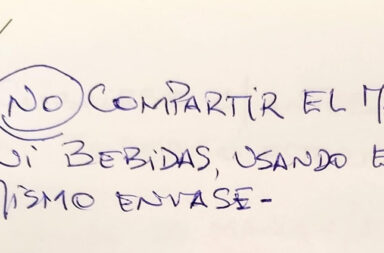 NO COMPARTIR EL
NI BEBIDAS, USANDO
MISMO ENVASE-